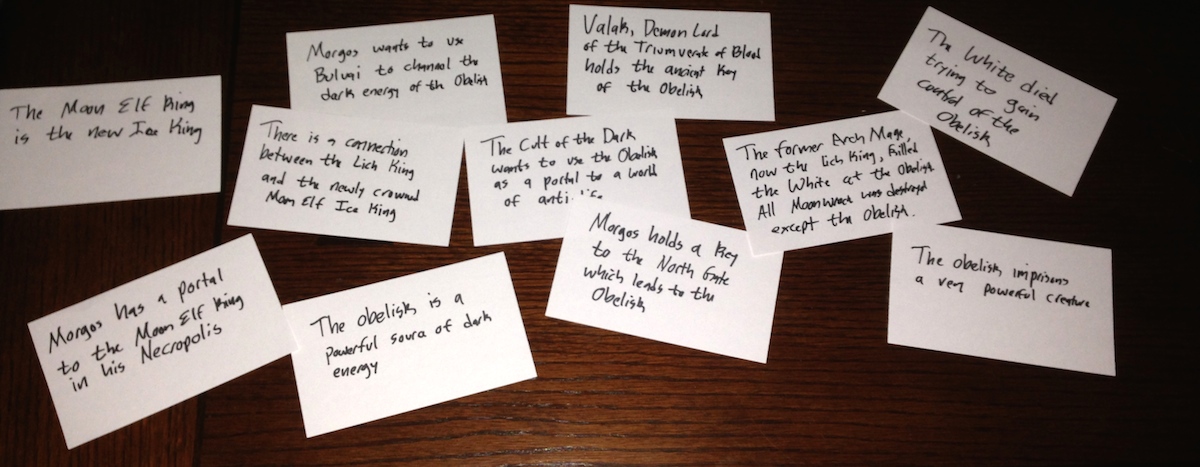 The Moon Elf King
is the new Ice King
Morgos wants to use
Bulvai to channel the
dark energy of the Obelisk
Valak, Demon Lord
of the Triumverate of Blood
holds the ancient Key
of the Obelisk
The White died
trying to gain
control of the
Obelisk
There is a connection
between the Lich King
and the newly crowned
Moon Elf Ice King
The Cult of the Dark
wants to use the Obelisk
as a portal to a world
of anti
The former Arch Mage,
now the Lich King, killed
the White at the Obelisk.
All Moonwrack was destroyed
except the Obelisk.
Morgos has a portal
to the Moon Elf King
in his Necropolis
The obelisk is a
powerful source of dark
energy
Morgos holds a Key
to the North Gate
which leads to the
Obelisk
The obelisk imprisons
a very powerful creature